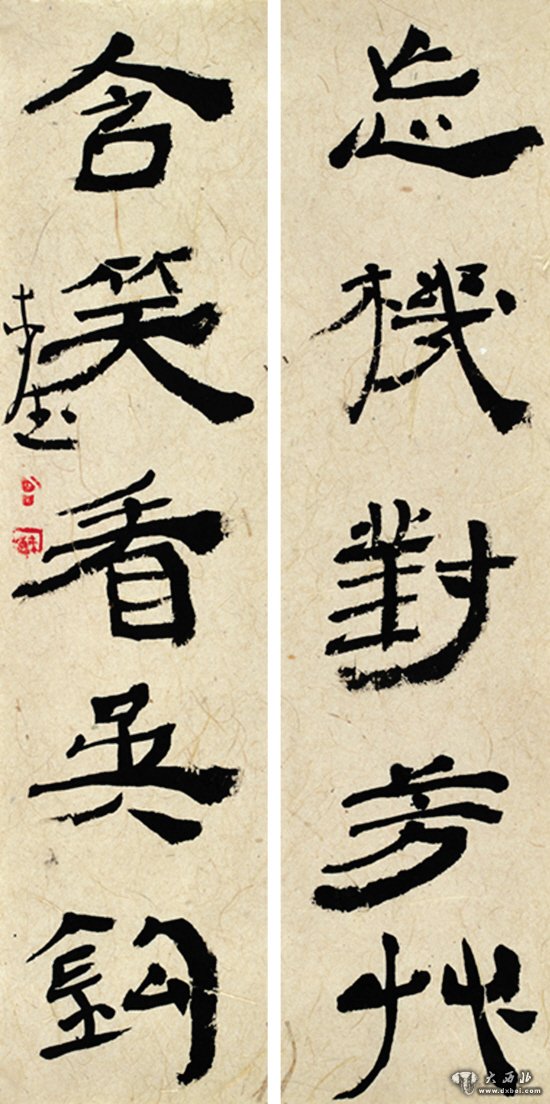 忘機對芳艸
含笑看吳鉤
大西北
www.dxbei.com